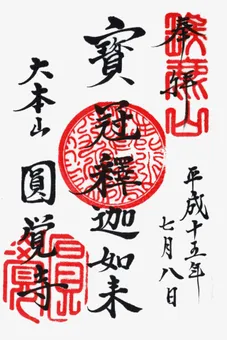 奉拝
平成十五年
七月八日
寶冠釋迦如来
大本山
圓覚寺